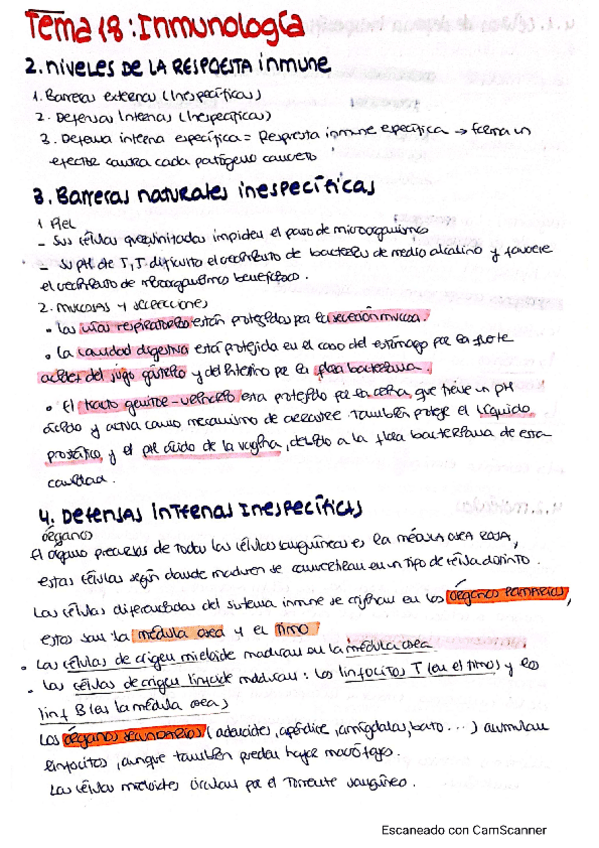 Tema 18: Inmunología
2. NIVELES DE LA RESPUESTA inmune
1. Barreras externas (Inespecíficas)
2. Defensas Internas (Inespecíficas)
3. Defensa interna específica = Respuesta inmune específica → forma un
efector contra cada patógeno concreto
3. Barreras naturales inespecíficas
1 Piel
- Sus células queratinitadas impiden el paso de microorganismos
- Su pH de 5,5 dificulta el crecimiento de bacterias de medio alcalino y favorece
el crecimiento de microorganismos beneficiosos.
2. mucosas y secrecciones
• Las vías respiratorias están protegidas por la secreción mucosa.
• La cavidad digestiva está protejida en el caso del estómago por la fuerte
acidez del jugo gástrico y del intestino por la flora bacteriana.
• El tracto genito-urinario esta protegido por la orina, que tiene un pH
ácido y actua como mecanismo de arrastre. También proteje el líquido
prostático y el pH ácido de la vagina, debido a la flora bacteriana de esta
cavidad.
4. Defensas Internas Inespecíficas
órganos
El órgano precursor de todas las células sanguíneas es la médula osea roja,
estas células según donde maduren se convertirán en un tipo de célula distinto.
Las células diferenciadas del sistema inmune se originan en los órganos primarios,
estos son la médula osea y el timo
• Las células de origen mieloide maduran en la médula osea
• Las células de origen linfoide maduran: los linfocitos T (en el timo) y los
linf B (en la médula osea)
Los órganos secundarios (adenoides, apéndice, amígdalas, bazo...) acumulan
linfocitos, aunque también puedan haber macrófagos.
Las células mieloides circulan por el Torrente sanguíneo.
Escaneado con CamScanner